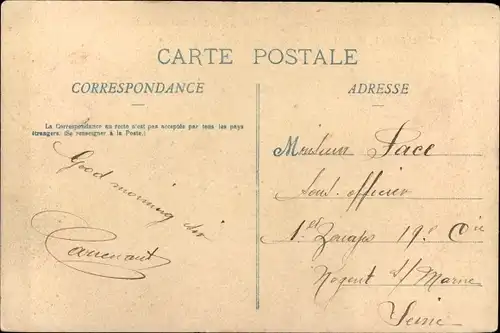 CARTE POSTALE
CORRESPONDANCE
ADRESSE
La Correspondance au recto n'est pas acceptée par tous les pays
étrangers. (Se renseigner à la Poste.)
Good morning sir
Monsieur Face
Sous officier
1er Zouaves 19e Cie
Nogent s/ Marne
Seine